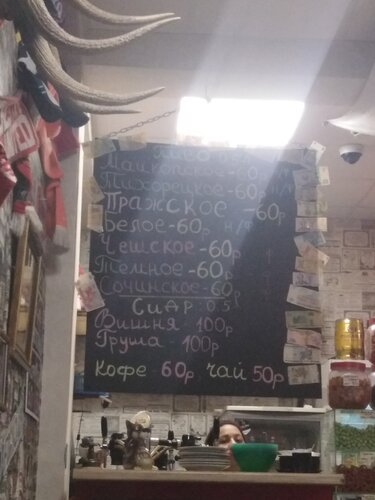 Пиво 0.5
Майкопское - 60р
Тихорецкое - 60р н/ф
Пражское - 60р
Белое - 60р н/ф
Чешское - 60р
Тёмное - 60р
Сочинское - 60р
Сидр 0.5
Вишня - 100р
Груша - 100р
Кофе - 60р чай 50р